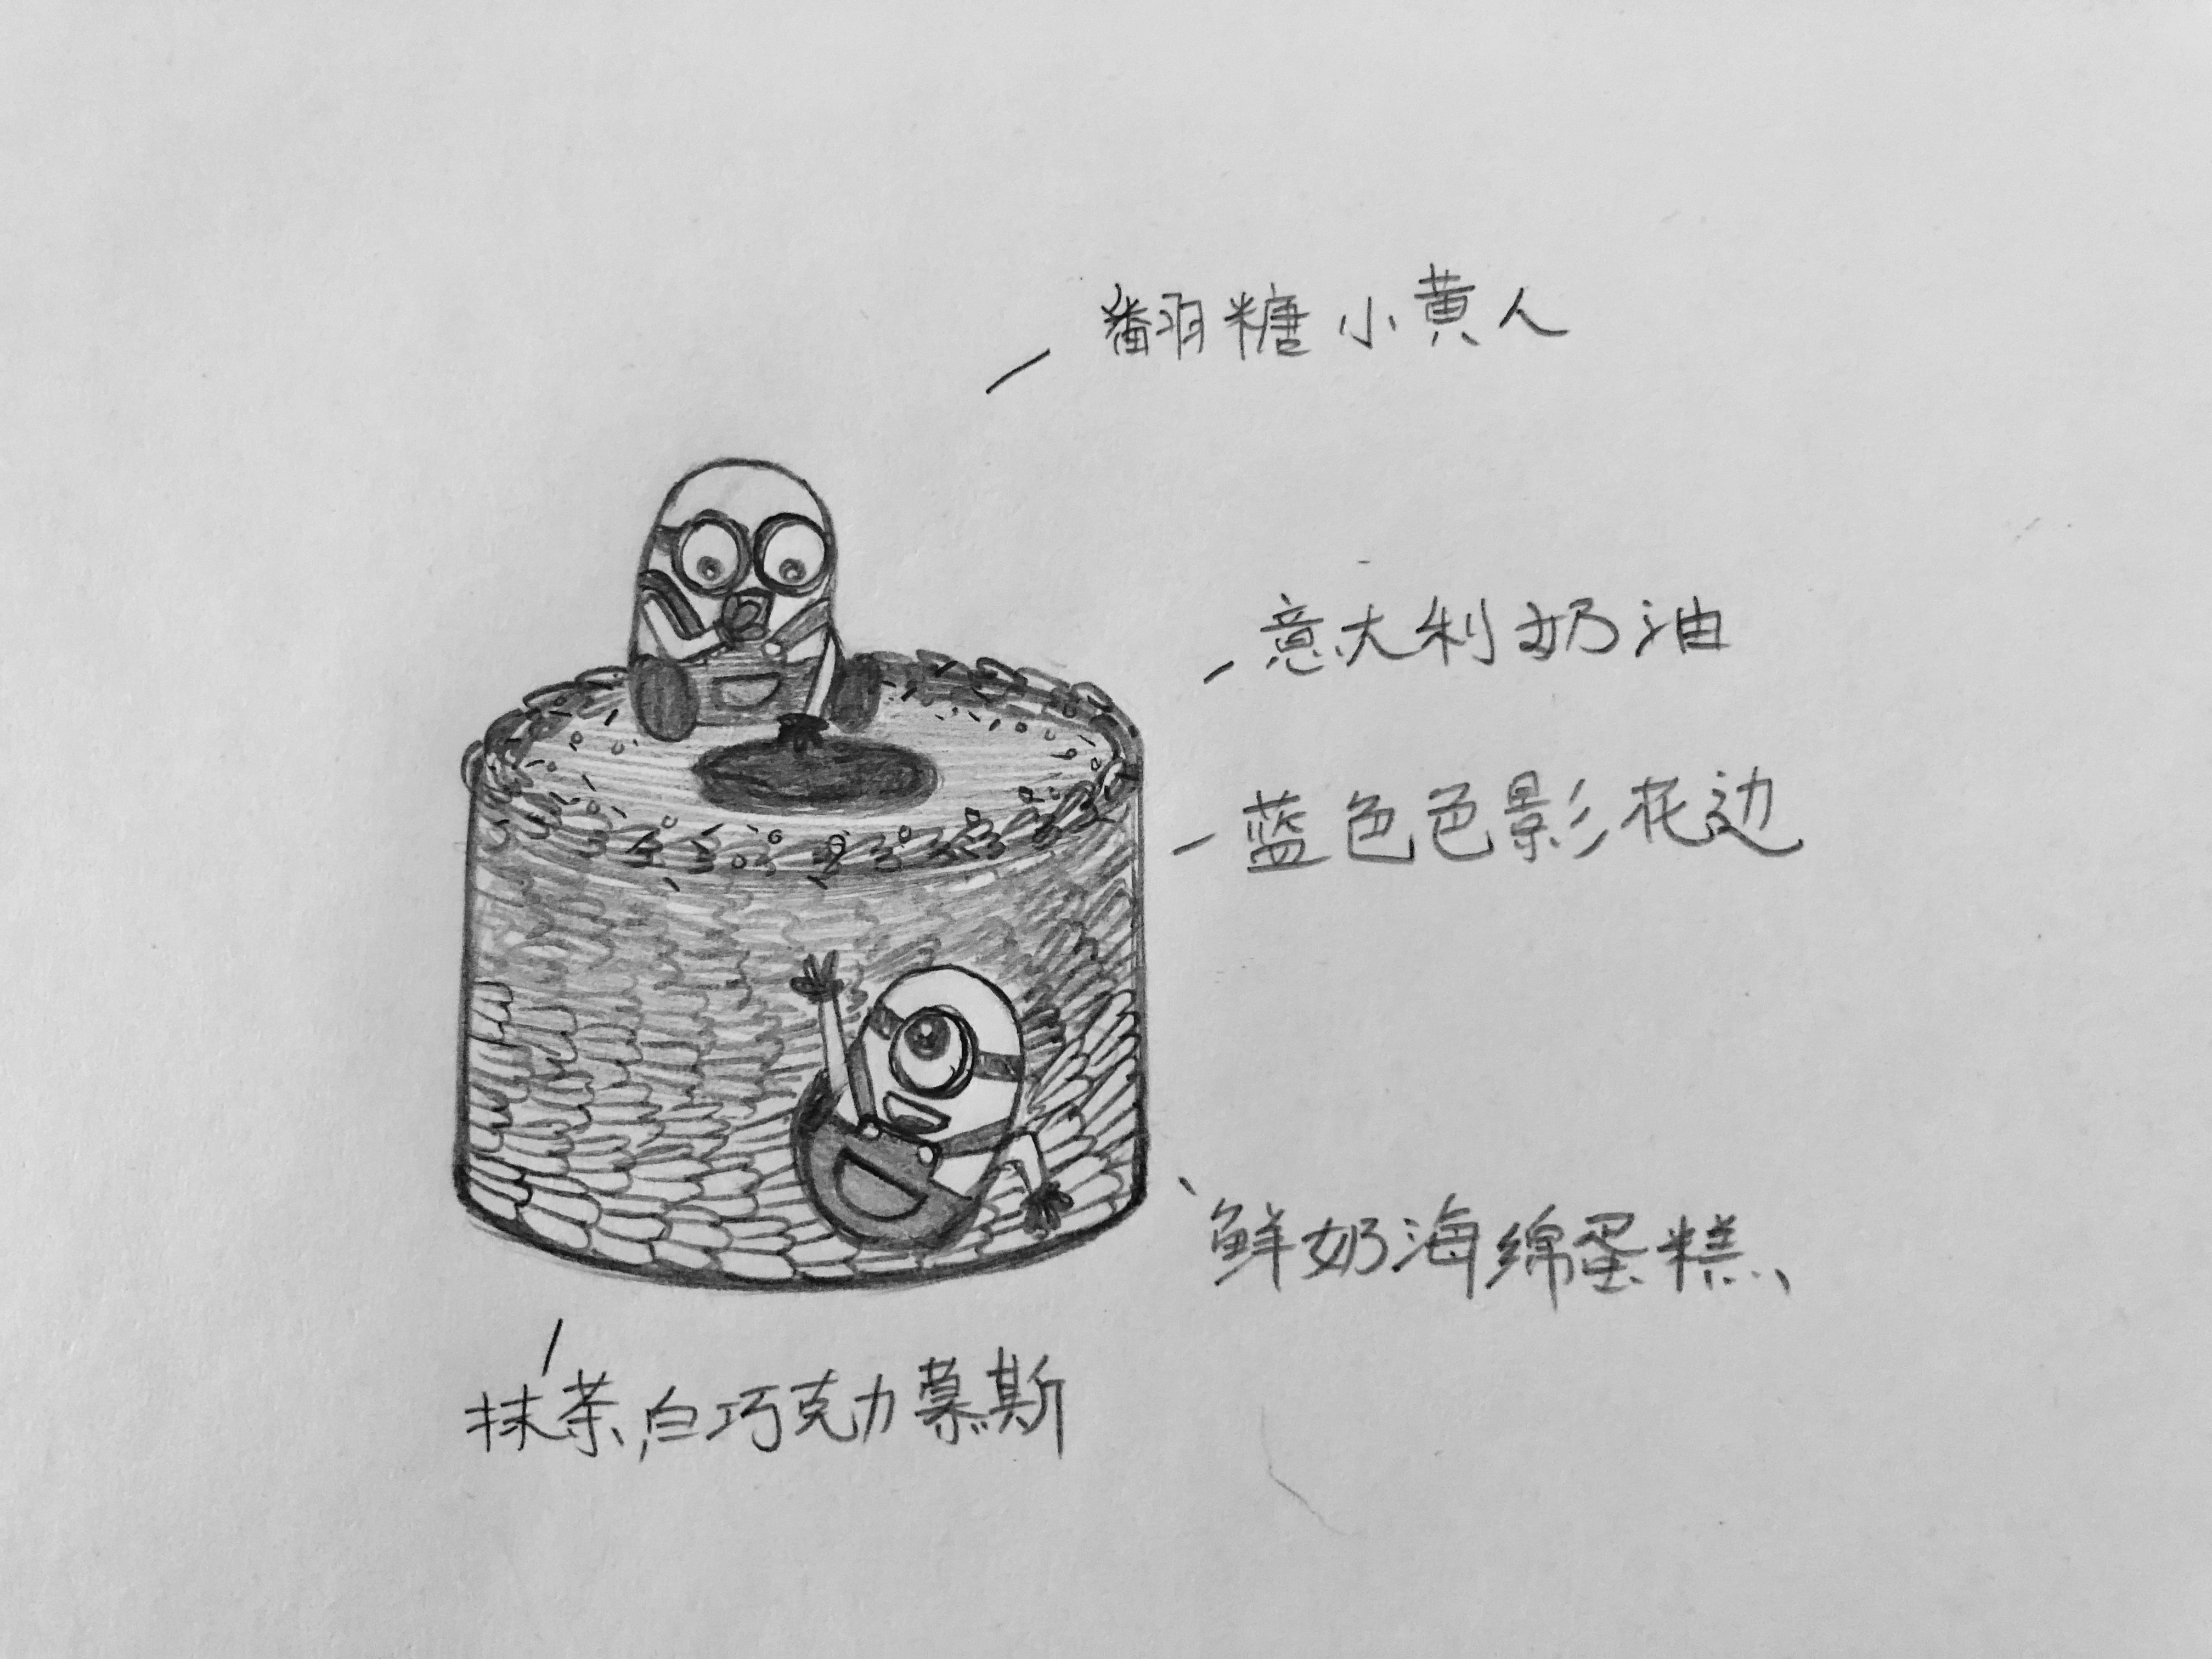 翻糖小黄人
意大利奶油
蓝色色影花边
鲜奶海绵蛋糕、
抹茶,白巧克力慕斯